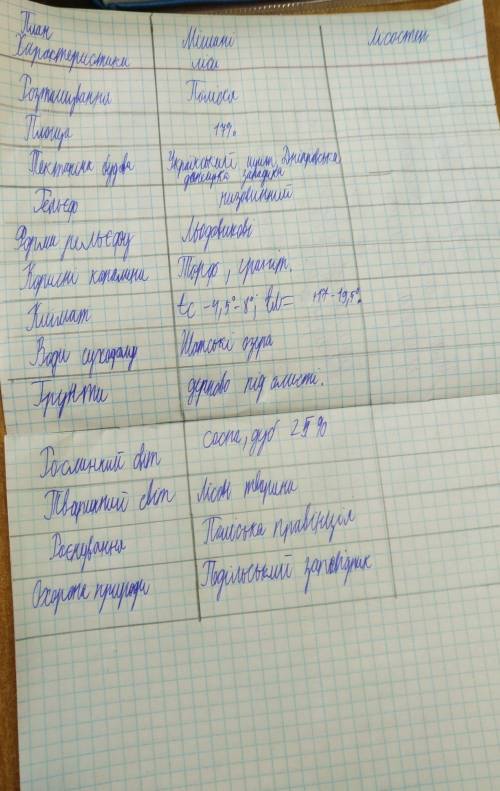 План Мішані Лісостеп
Характеристики ліси
Розташування Полісся
Площа 17%
Тектонічна будова Український щит, Дніпровсько
донецька западина
Рельєф низовинний
Форма рельєфу Льодовикові
Корисні копалини Торф, граніт.
Клімат tс -4,5°-8°; tл= +17-19,5°.
Води суходолу Шатські озера
Грунти дерново підзолисті.
Рослинний світ сосна, дуб 25%
Тваринний світ Лісові тварини
Раєнування Поліська правінція
Охорона природи Подільський заповідник